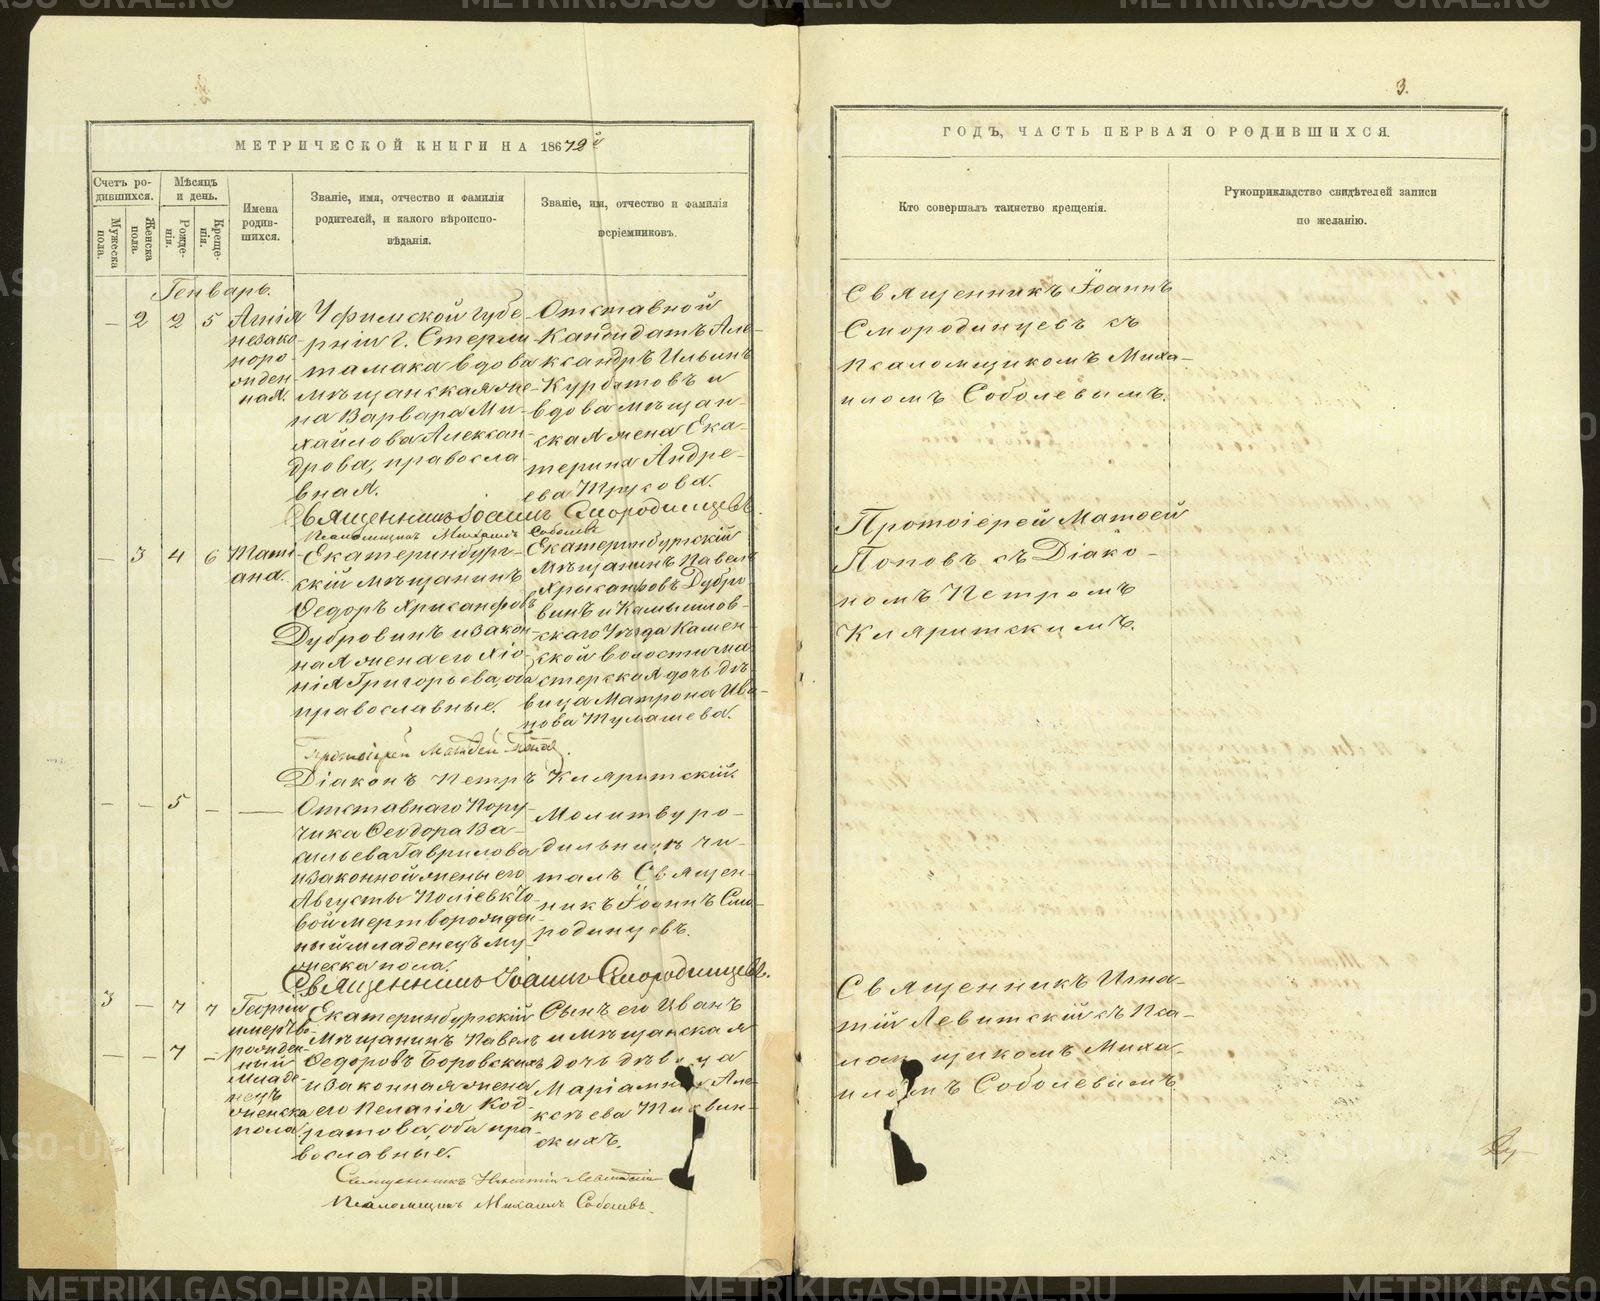 3.
МЕТРИЧЕСКОЙ КНИГИ НА 18672й
ГОДЪ, ЧАСТЬ ПЕРВАЯ О РОДИВШИХСЯ.
Счетъ ро-
дившихся.
Мужеска
пола.
Женска
пола.
Мѣсяцъ
и день.
Рожде-
нія.
Креще-
нія.
Имена
родив-
шихся.
Званіе, имя, отчество и фамилія
родителей, и какого вѣроиспо-
вѣданія.
Званіе, имя, отчество и фамилія
воспріемниковъ.
Кто совершалъ таинство крещенія.
Рукоприкладство свидѣтелей записи
по желанію.
Генварь.
— 2 2 5
незако-
норо-
жден-
ная.
Уфимской губе-
рніи г. Стерли-
тамака вдова
мѣщанская же-
на Варвара Ми-
хайлова Алексан-
дрова, правосла-
вная.
Отставной
Кандидатъ Але-
ксандръ Ильинъ
Курбатовъ и
вдова мѣщан-
ская жена Ека-
терина Андре-
ева Трукова.
Священникъ Іоаннъ
Смородинцевъ съ
псаломщикомъ Миха-
иломъ Соболевымъ.
Священникъ Іоаннъ Смородинцевъ.
Псаломщикъ Михаилъ Соболевъ
— 3 4 6
Тати-
ана.
Екатеринбург-
скій мѣщанинъ
Ѳедоръ Хрисанфовъ
Дубровинъ и закон-
ная жена его Хіо-
нія Григорьева, оба
православные.
Екатеринбургскій
мѣщанинъ Павелъ
Хрысанфовъ Дубро-
винъ и Камышлов-
скаго уѣзда Камен-
ской волости ма-
стерская дочь дѣ-
вица Матрона Ива-
нова Тумашева.
Протоіерей Матѳей
Поповъ съ Діако-
номъ Петромъ
Кляритскимъ.
Протоіерей Матѳей Поповъ.
Діаконъ Петръ Кляритскій.
— — 5 — —
Отставнаго Пору-
чика Ѳеодора Ва-
сильева Гаврилова
и законной жены его
Августы
вой мертворожден-
ный младенецъ му-
жеска пола.
Молитву ро-
дильницѣ чи-
талъ Священ-
никъ Іоаннъ Смо-
родинцевъ.
Священникъ Іоаннъ Смородинцевъ.
3 — 7 7
— — 7 —
Георгій
и мертво-
рожден-
ный
младе-
нецъ
женска
пола
Екатеринбургскій
мѣщанинъ Павелъ
Ѳедоровъ Боровскихъ
и законная жена
его Пелагія Код-
ратова, оба пра-
вославные.
Сынъ его Иванъ
и мѣщанская
дочь дѣвица
Маріамна Але-
ксѣева Тиквин-
скихъ.
Священникъ Игна-
тій Левитскій съ Пса-
ломщикомъ Миха-
иломъ Соболевымъ.
Священникъ Игнатій Левитскій
Псаломщикъ Михаилъ Соболевъ.
METRIKI.GASO-URAL.RU